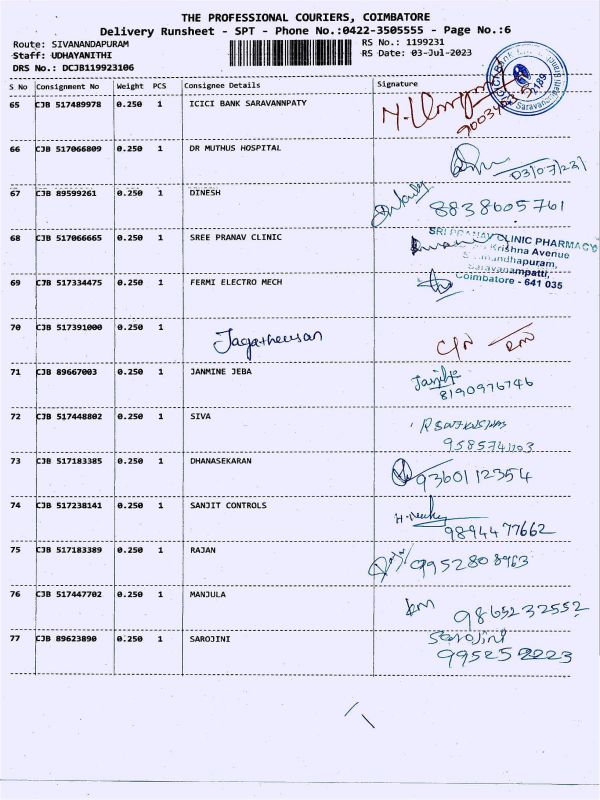 THE PROFESSIONAL COURIERS, COIMBATORE
Delivery Runsheet - SPT - Phone No.:0422-3505555 - Page No.:6
Route: SIVANANDAPURAM RS No.: 1199231
Staff: UDHAYANITHI RS Date: 03-Jul-2023
DRS No.: DCJB119923106
S No Consignment No Weight PCS Consignee Details Signature
65 CJB 517489978 0.250 1 ICICI BANK SARAVANNPATY
66 CJB 517066809 0.250 1 DR MUTHUS HOSPITAL
03/07/23
67 CJB 89599261 0.250 1 DINESH
8838605761
68 CJB 517066665 0.250 1 SREE PRANAV CLINIC
SRI PRANAV CLINIC PHARMACY
Krishna Avenue
Saravanampatti,
Coimbatore - 641 035
69 CJB 517334475 0.250 1 FERMI ELECTRO MECH
70 CJB 517391000 0.250 1
Jagatheesan
71 CJB 89667003 0.250 1 JANMINE JEBA
8190976746
72 CJB 517448802 0.250 1 SIVA
9585741203
73 CJB 517183385 0.250 1 DHANASEKARAN
9360112354
74 CJB 517238141 0.250 1 SANJIT CONTROLS
9894477662
75 CJB 517183389 0.250 1 RAJAN
9952808963
76 CJB 517447702 0.250 1 MANJULA
9865232552
77 CJB 89623890 0.250 1 SAROJINI
Sarojini
995252223